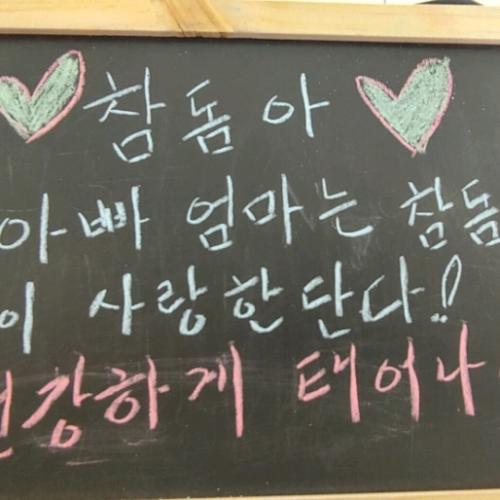 참돔아
아빠 엄마는 참돔
이 사랑한단다!!
건강하게 태어나